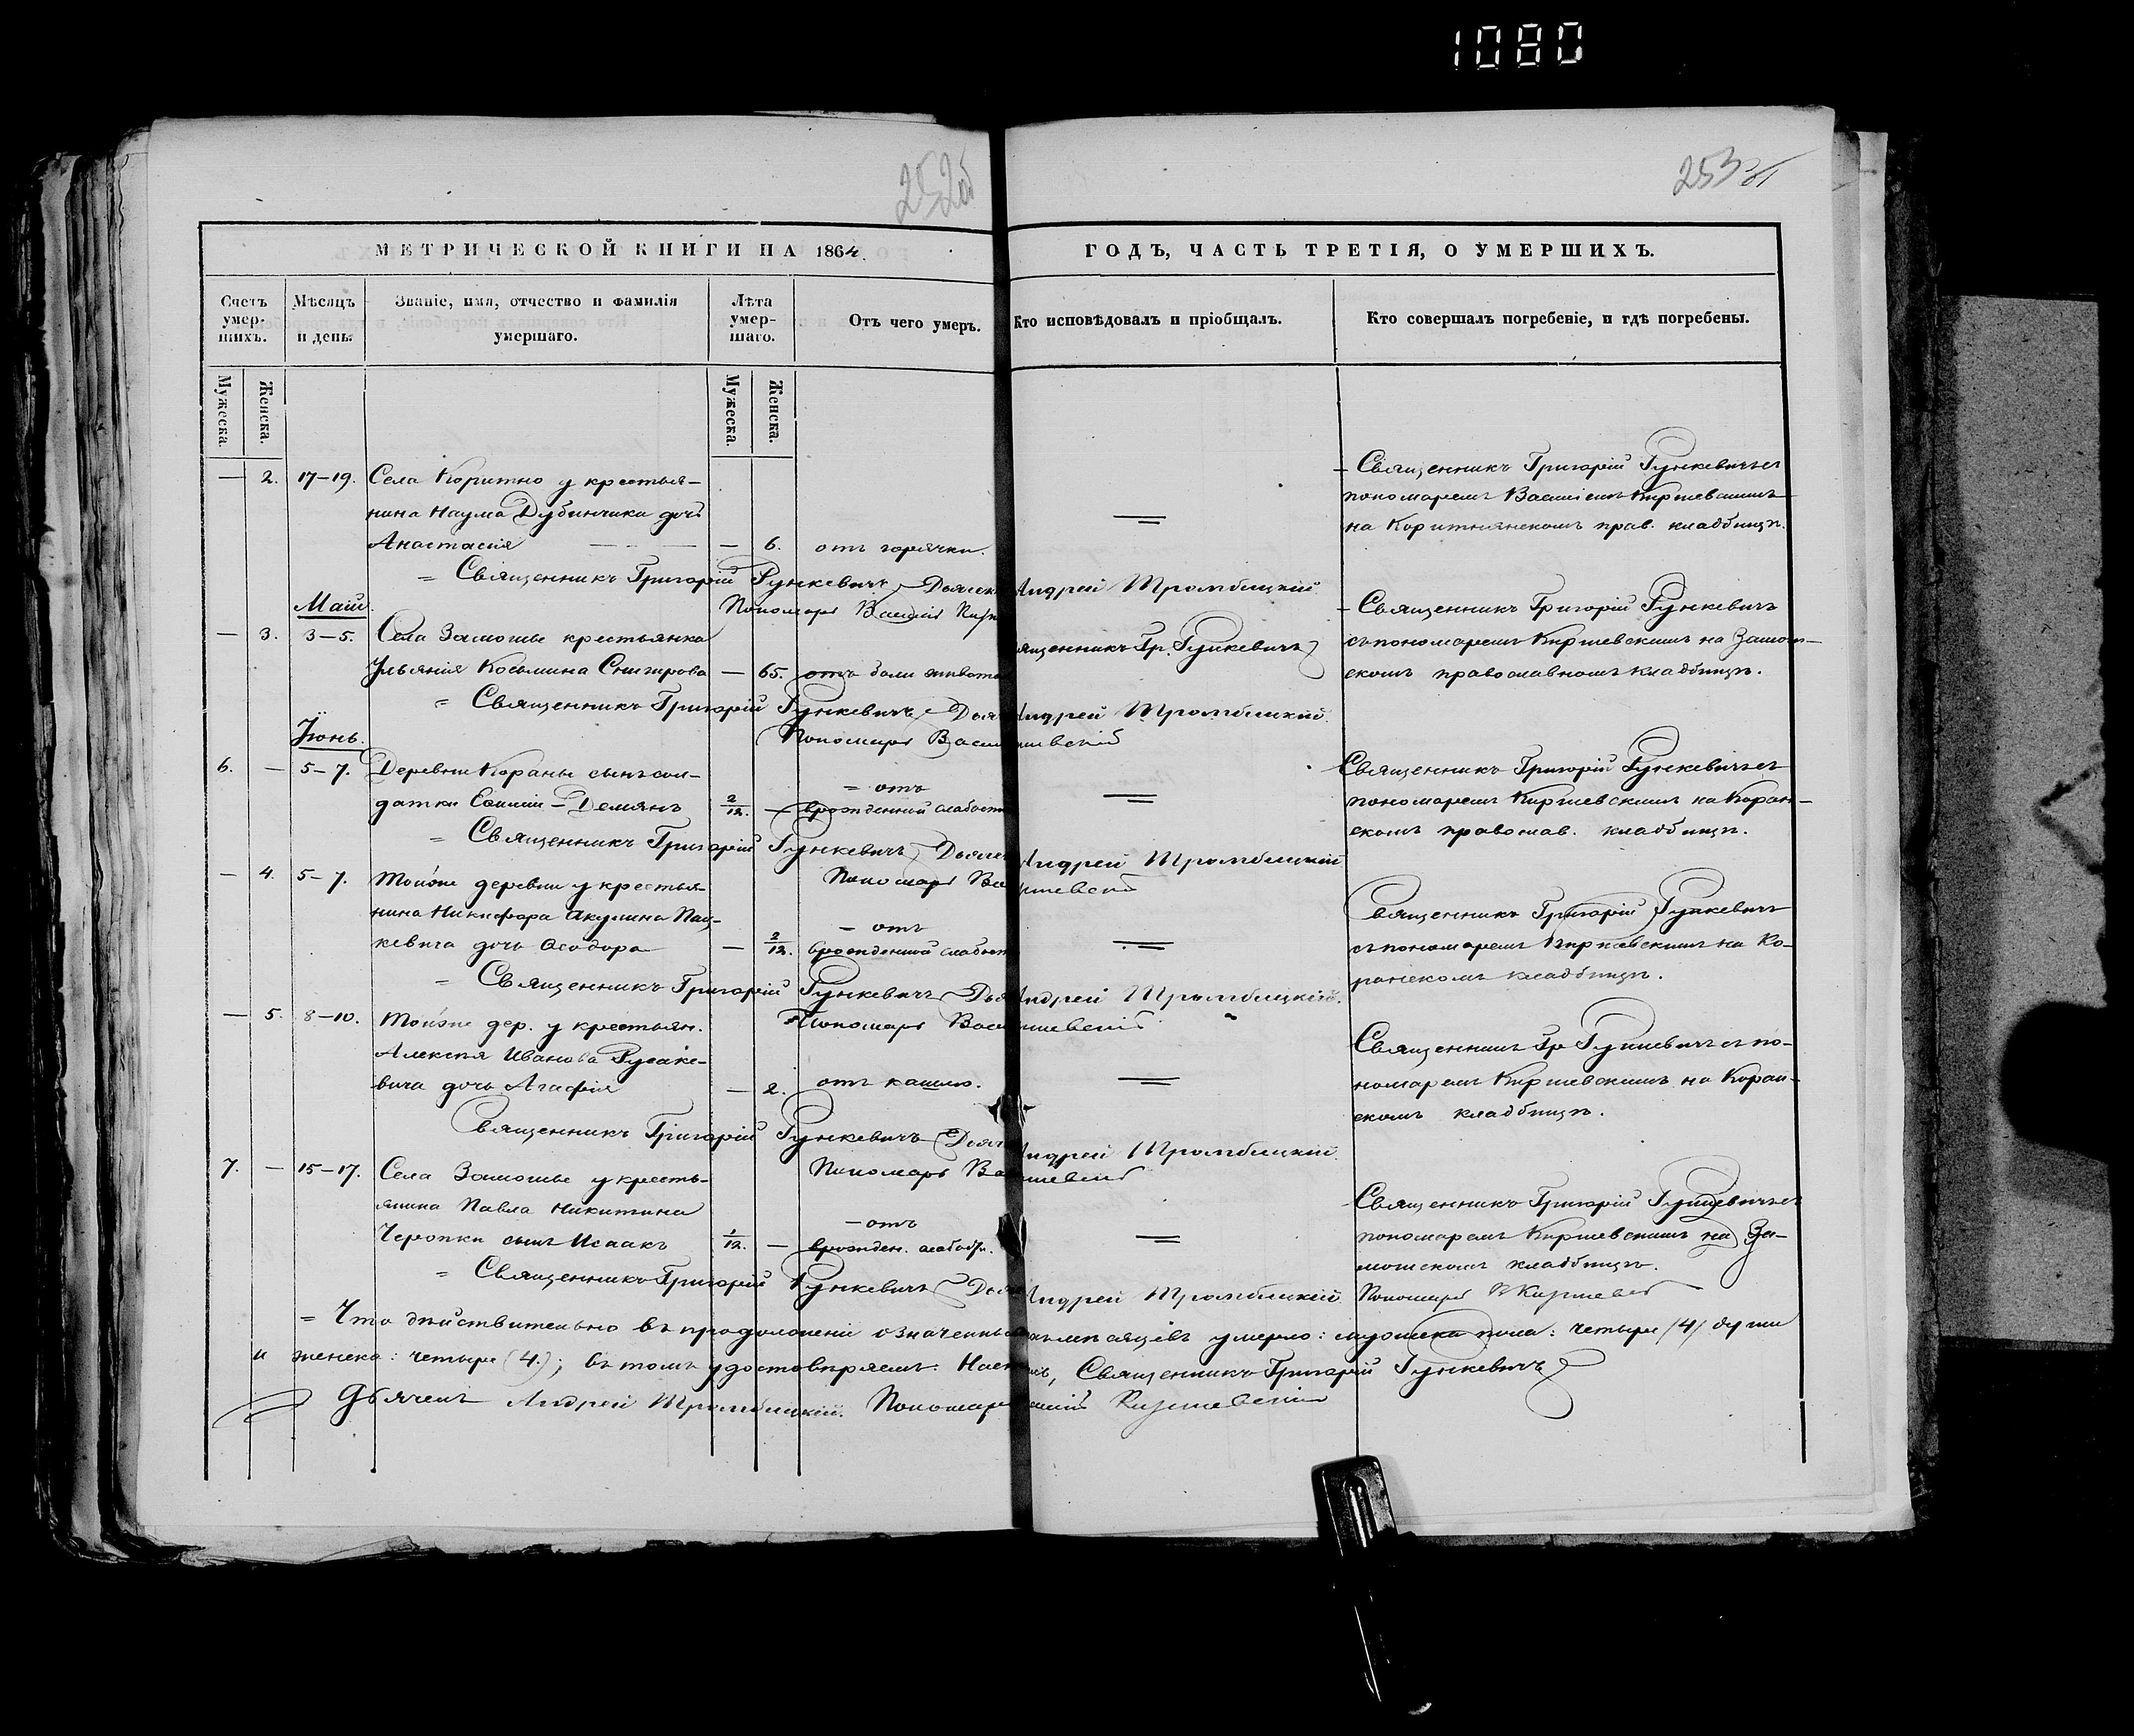 1080
252об
253
МЕТРИЧЕСКОЙ КНИГИ НА 1864
ГОДЪ, ЧАСТЬ ТРЕТІЯ, О УМЕРШИХЪ.
Счетъ умер-шихъ.
Мѣсяцъ и день.
Званіе, имя, отчество и фамилія умершаго.
Лѣта умер-шаго.
Отъ чего умеръ.
Кто исповѣдовалъ и пріобщалъ.
Кто совершалъ погребеніе, и гдѣ погребены.
Мужеска.
Женска.
Мужеска.
Женска.
— 2. 17–19. Села Коритно у крестья-
нина Наума Дубинчика дочь
Анастасія — 6. отъ горячки.
Священникъ Григорій Рункевичъ съ
пономаремъ Василіемъ Киршевскимъ
на Коритнянскомъ прав. кладбищѣ.
= Священникъ Григорій Рункевичъ Дьячекъ Андрей Тромбицкій
Пономарь Василій
Май.
— 3. 3–5. Села Замошье крестьянка
Ульянія Косьмина Снигирова — 65. отъ боли живота
Священникъ Гр. Рункевичъ
Священникъ Григорій Рункевичъ
съ пономаремъ Киршевскимъ на Замош-
скомъ православномъ кладбищѣ.
= Священникъ Григорій Рункевичъ Андрей Тромбицкій.
Пономарь
Іюнь.
6. — 5–7. Деревни Кораны сынъ сол-
датки – Демянъ 2/12. — отъ
врожденной слабости
Священникъ Григорій Рункевичъ съ
пономаремъ Киршевскимъ на Коран-
скомъ православ. кладбищѣ.
= Священникъ Григорій Рункевичъ Андрей Тромбицкій
Пономарь
— 4. 5–7. Той же деревни у крестья-
нина Никифора Акулина Пац-
кевича дочь Ѳеодора — 2/12. – отъ
врожденной слабости
Священникъ Григорій Рункевичъ
съ пономаремъ Киршевскимъ на Ко-
ранскомъ кладбищѣ.
= Священникъ Григорій Рункевичъ Андрей Тромбицкій.
Пономарь
— 5. 8–10. Той же дер. у крестьян.
Алексѣя Иванова Русаке-
вича дочь Агафія — 2. отъ кашлю.
Священникъ Гр Рункевичъ съ по-
номаремъ Киршевскимъ на Коран-
скомъ кладбищѣ.
Священникъ Григорій Рункевичъ Андрей Тромбицкій.
Пономарь
7. — 15–17. Села Замошье у кресть-
янина Павла Никитина
Черопки сынъ Исаакъ 1/12. — – отъ
врожден. слабости.
Священникъ Григорій Рункевичъ съ
пономаремъ Киршевскимъ на За-
мошскомъ кладбищѣ.
= Священникъ Григорій Рункевичъ Андрей Тромбицкій Пономарь В Киршевс
= Что дѣйствительно въ продолженіи означенныхъ мѣсяцевъ умерло: мужеска пола: четыре (4) души
и женска: четыре (4.); въ томъ удостовѣряемъ: Священникъ Григорій Рункевичъ
Дьячекъ Андрей Тромбицкій. Пономарь Киршевскій